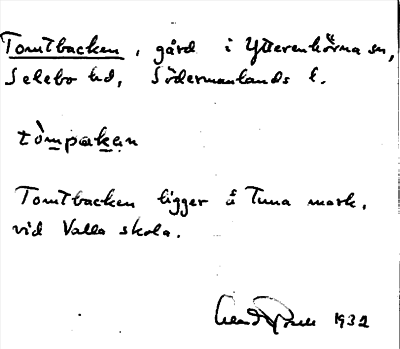 Tomtbacken, gård i Ytterenhörna sn,
Selebo hd, Södermanlands l.
tòmpakan
Tomtbacken ligger å Tuna mark,
vid Valla skola.
1932